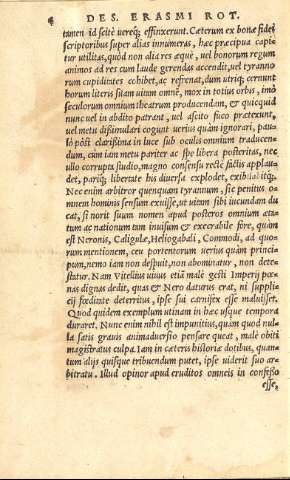 4 DES. ERASMI ROT.
tamen id scitè uereq; effinxerunt. Cæterum ex bonæ fidei
scriptoribus super alias innumeras, hæc præcipua capi=
tur utilitas, quòd non alia res æquè, uel bonorum regum
animos ad res cum laude gerendas accendit, uel tyranno=
rum cupiditates cohibet, ac refrenat, dum utriq; cernunt
horum literis suam uitam omnē, mox in totius orbis, imò
seculorum omnium theatrum producendam, & quicquid
nunc uel in abdito patrant, uel ascito fuco prætexunt,
uel metu dissimulari cogunt uerius quàm ignorari, pau=
lò pòst clarissima in luce sub oculis omnium traducen=
dum, cùm iam metu pariter ac spe libera posteritas, nec
ullo corrupta studio, magno consensu rectè factis applau=
det, pariq; libertate his diuersa explodet, exibilabitq;.
Nec enim arbitror quenquam tyrannum, sic penitus o=
mnem hominis sensum exuisse, ut uitam sibi iucundam du
cat, si norit suum nomen apud posteros omnium æta=
tum ac nationum tam inuisum & execrabile fore, quàm
est Neronis, Caligulæ, Heliogabali, Commodi, ad quo=
rum mentionem, ceu portentorum uerius quàm princi=
pum, nemo iam non despuit, non abominatur, non dete=
statur. Nam Vitelius unus etiā malè gesti Imperij pœ=
nas dignas dedit, quas & Nero daturus erat, ni supplic
cij fœditate deterritus, ipse sui carnifex esse maluisset.
Quod quidem exemplum utinam in hæc usque tempora
duraret. Nunc enim nihil est impunitius, quàm quod nul=
la satis grauis animaduersio pensare queat, malè obiti
magistratus culpa. Iam in cæteris historiæ dotibus, quan=
tum alijs quisque tribuendum putet, ipse uiderit suo ar=
bitratu. Illud opinor apud eruditos omneis in confesso
esse,